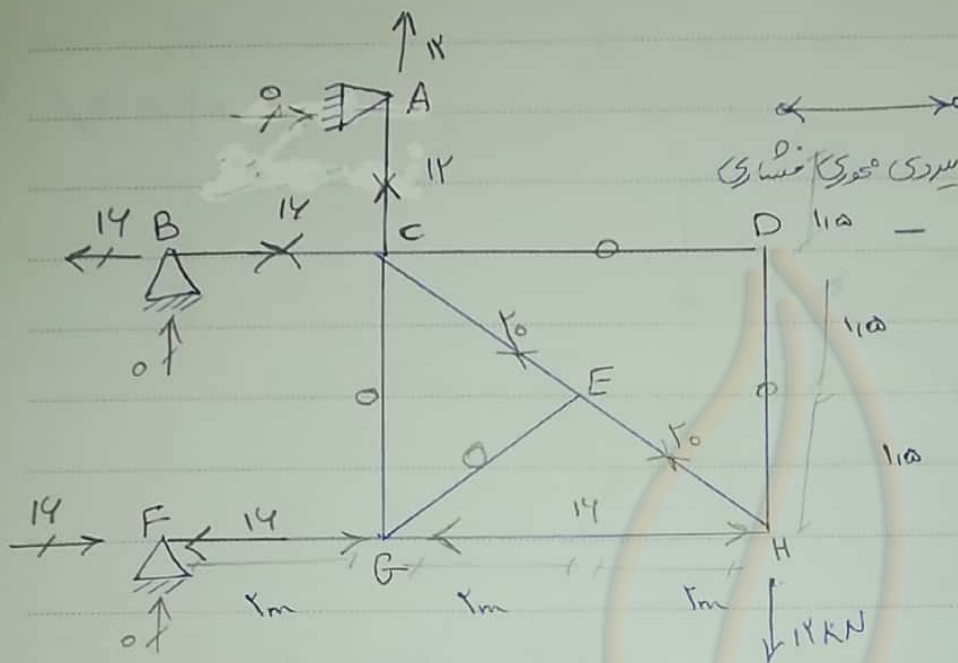 ۱۲
۰ A
۱۲
نیروی محوری فشاری
۱۶ B ۱۶ C ۰ D ۱,۵
۰
۲۰
۱,۵
۰ E ۰
۰ ۲۰
۱,۵
۱۶ F ۱۶ ۱۶
G H
۲m ۲m ۲m
۰ ۱۲KN